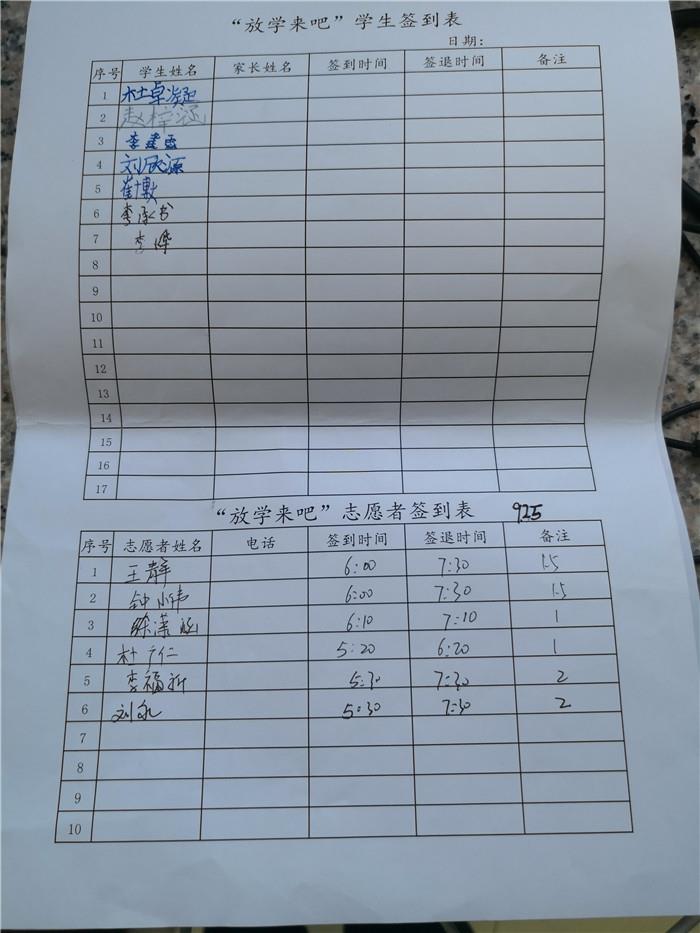 “放学来吧”学生签到表
日期:
序号 学生姓名 家长姓名 签到时间 签退时间 备注
1 杜卓凝
2 赵梓涵
3 李建
4 刘源
5 崔博
6 李承书
7 李
8
9
10
11
12
13
14
15
16
17
“放学来吧”志愿者签到表 9.25
序号 志愿者姓名 电话 签到时间 签退时间 备注
1 王静 6:00 7:30 1.5
2 钟小伟 6:00 7:30 1.5
3 徐潇 6:10 7:10 1
4 杜广仁 5:20 6:20 1
5 李福新 5:30 7:30 2
6 刘 5:30 7:30 2
7
8
9
10